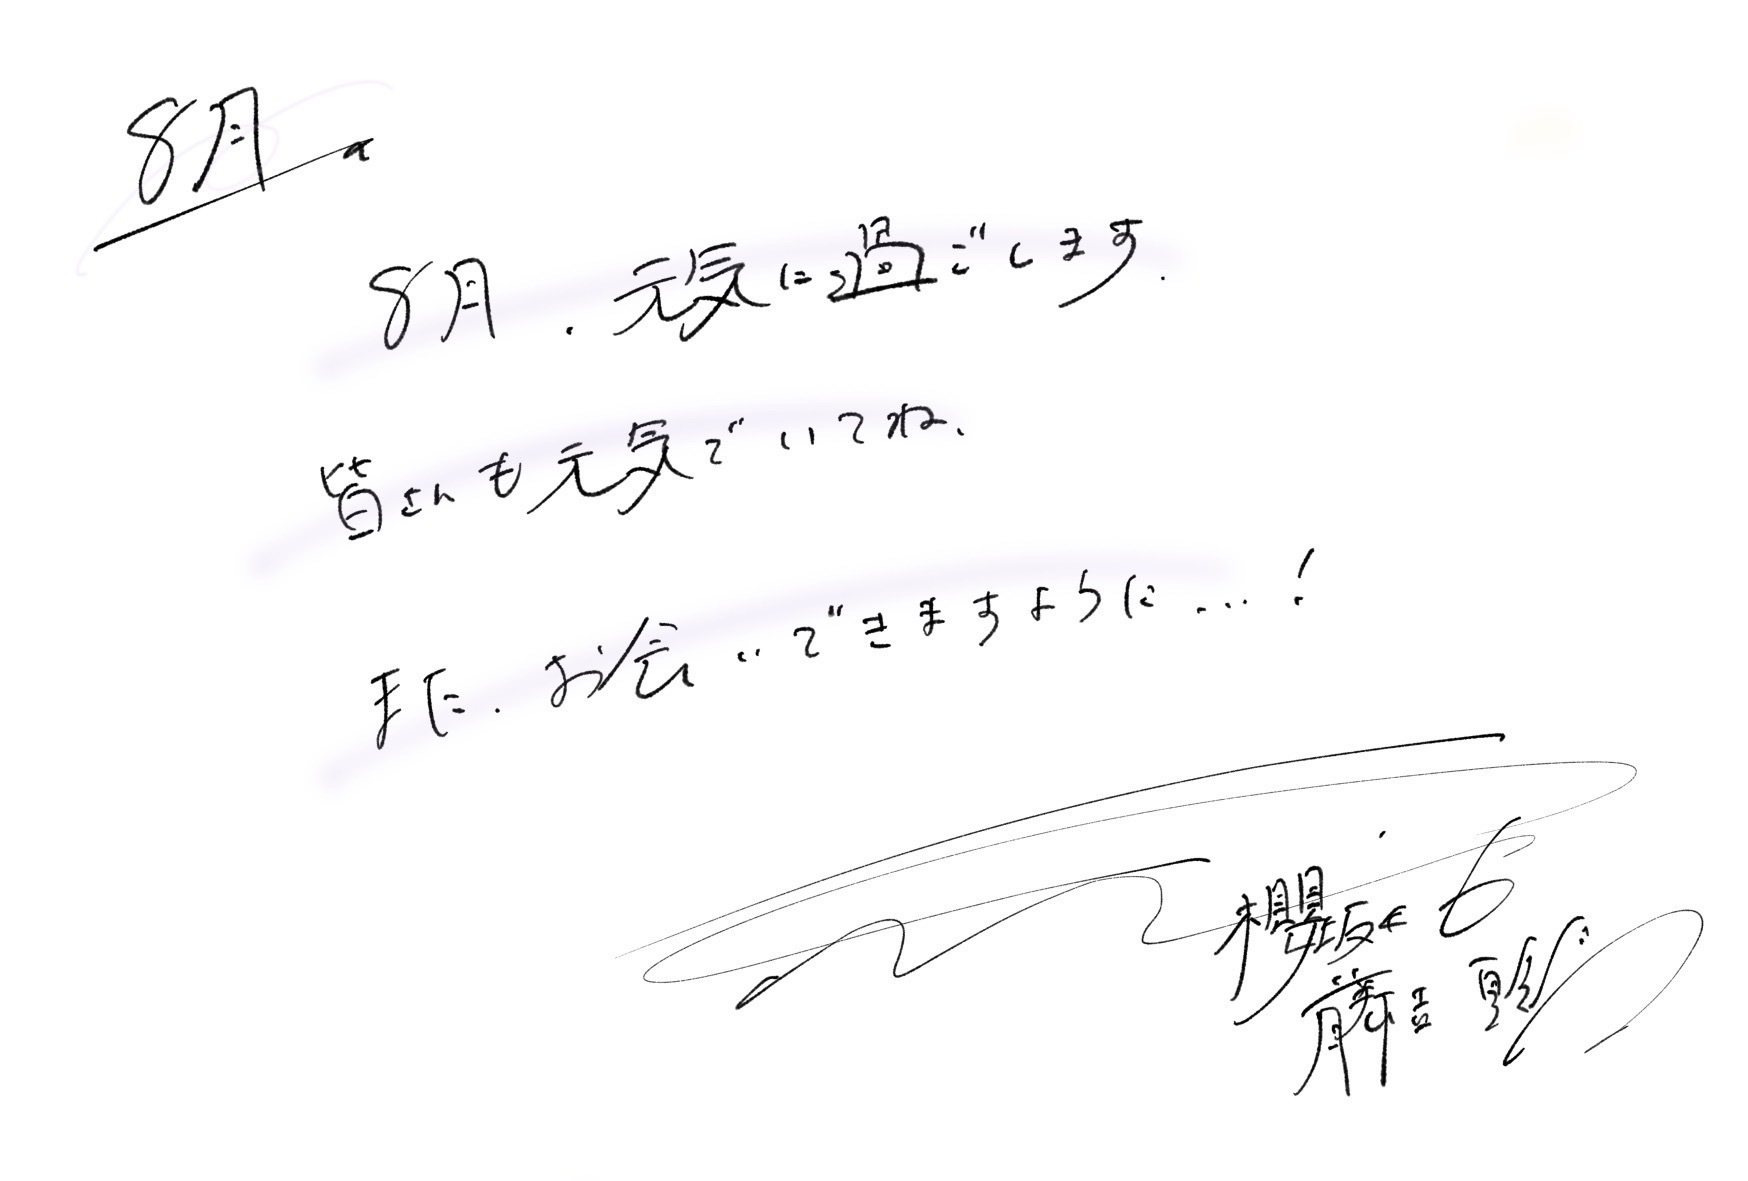 8月
8月、元気に過ごします.
皆さんも元気でいてね、
また、お会いできますように…!
櫻坂46
藤吉夏鈴